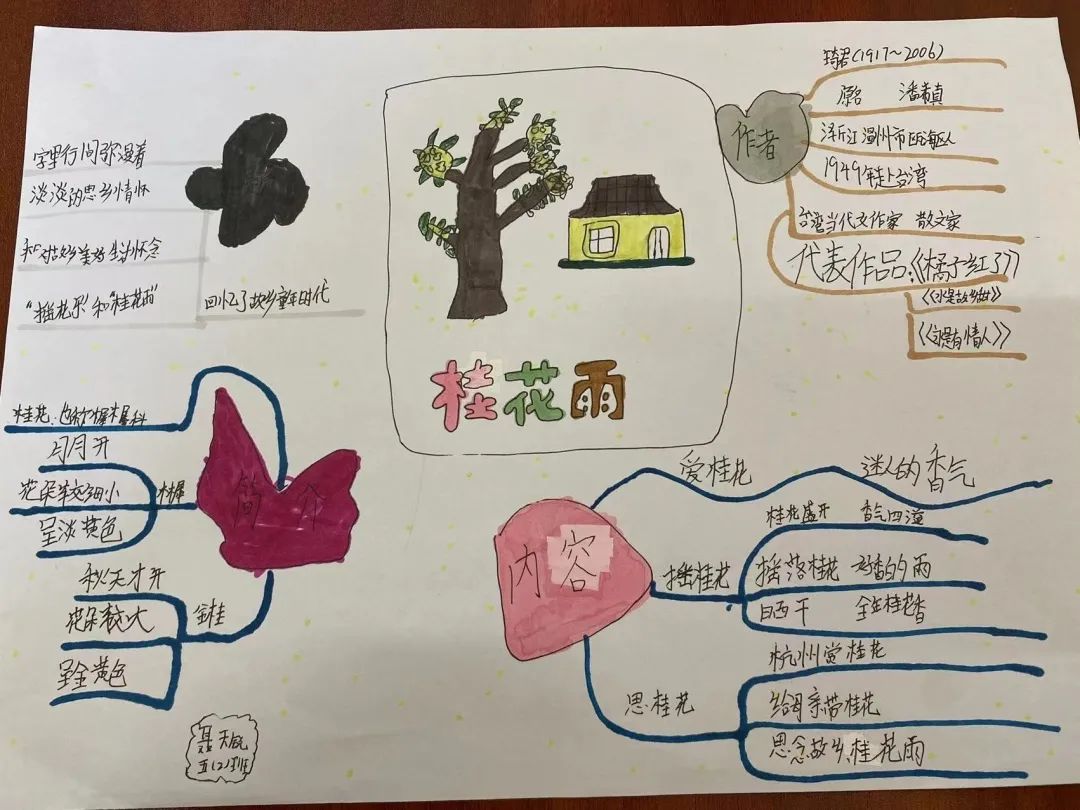 桂花雨
作者
琦君(1917~2006)
原名 潘希真
浙江温州市瓯海区人
1949年赴台湾
台湾当代女作家 散文家
代表作品:《橘子红了》
《水是故乡甜》
《永是有情人》
字里行间弥漫着
淡淡的思乡情怀
和对故乡美好生活的怀念
"摇花乐"和"桂花雨"
回忆了故乡童年时代
简介
桂花:也称木犀科
木犀
月月开
花朵较细小
呈淡黄色
金桂
秋天才开
花朵较大
呈金黄色
内容
爱桂花 迷人的香气
摇桂花
桂花盛开 香气四溢
摇落桂花 好香的雨
晒干 全年桂花香
思桂花
杭州赏桂花
给母亲带桂花
思念故乡桂花雨
五(2)班